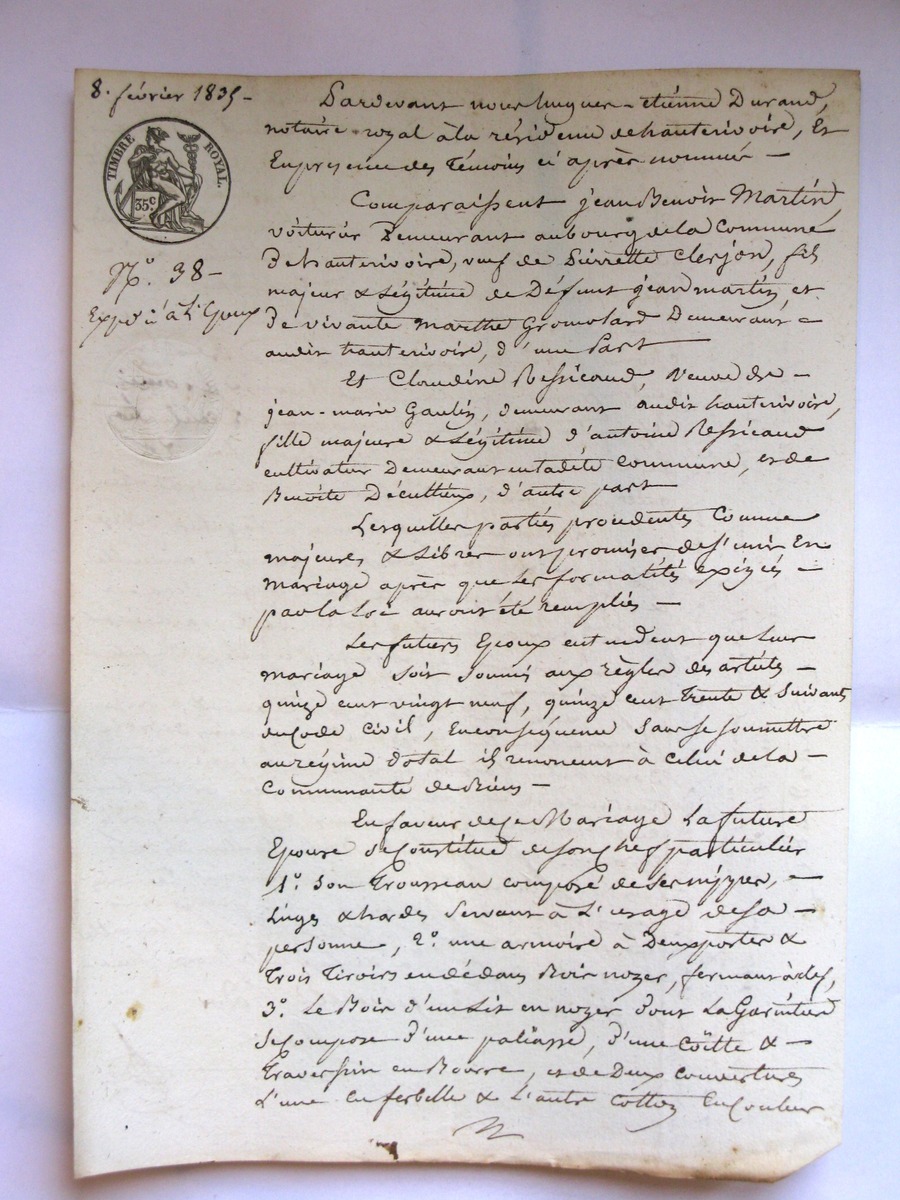 8. février 1835 -
TIMBRE ROYAL.
35 c
N.° 38 -
Exp.on à L'Epoux
Pardevant nous hugues - étienne Durand,
notaire royal à la résidence de hauterivoire, Et
En presence des Témoins ci après nommés -
Comparaissent jean Benoît Martin,
voiturier Demeurant au bourg de la Commune
De hauterivoire, veuf de Pierrette Clerjon, fils
majeur & Légitime de Défunt jean martin, et
De vivante Marthe Gromolard Demeurant -
audit hauterivoire, d'une Part
Et Claudine Ressicaud, Veuve de -
jean-marie Gaulin, demeurant audit hauterivoire,
fille majeure & Légitime d'antoine Ressicaud
cultivateur Demeurant en ladite Commune, et de
Benoîte Décultieux, d'autre part
Lesquelles parties procedentes Comme
majeures & Libres ont promises de s'unir En
mariage après que les formalités exigées -
par la Loi auront été remplies -
Les futurs Epoux entendent que leur
mariage soit soumis aux règles des articles -
quinze cent vingt neuf, quinze cent trente & suivants
du Code Civil, En conséquence sans se soumettre
au régime dotal ils renoncent à Celui de la -
Communauté de Biens -
En faveur de ce Mariage La future
Epouse se Constitue de son Chef particulier
1.° Son Trousseau composé de ses nippes, -
Linges & hardes servant à L'usage de sa -
personne, 2.° une armoire à Deux portes &
Trois Tiroirs en dédans Bois noyer, fermant à clef,
3.° Le Bois d'un Lit en noyer dont La Garniture
se Compose d'une paliasse, d'une Coîtte & -
Traversin en Bourre, et de Deux couvertures
L'une En ferbelle & L'autre Cotton En Couleur